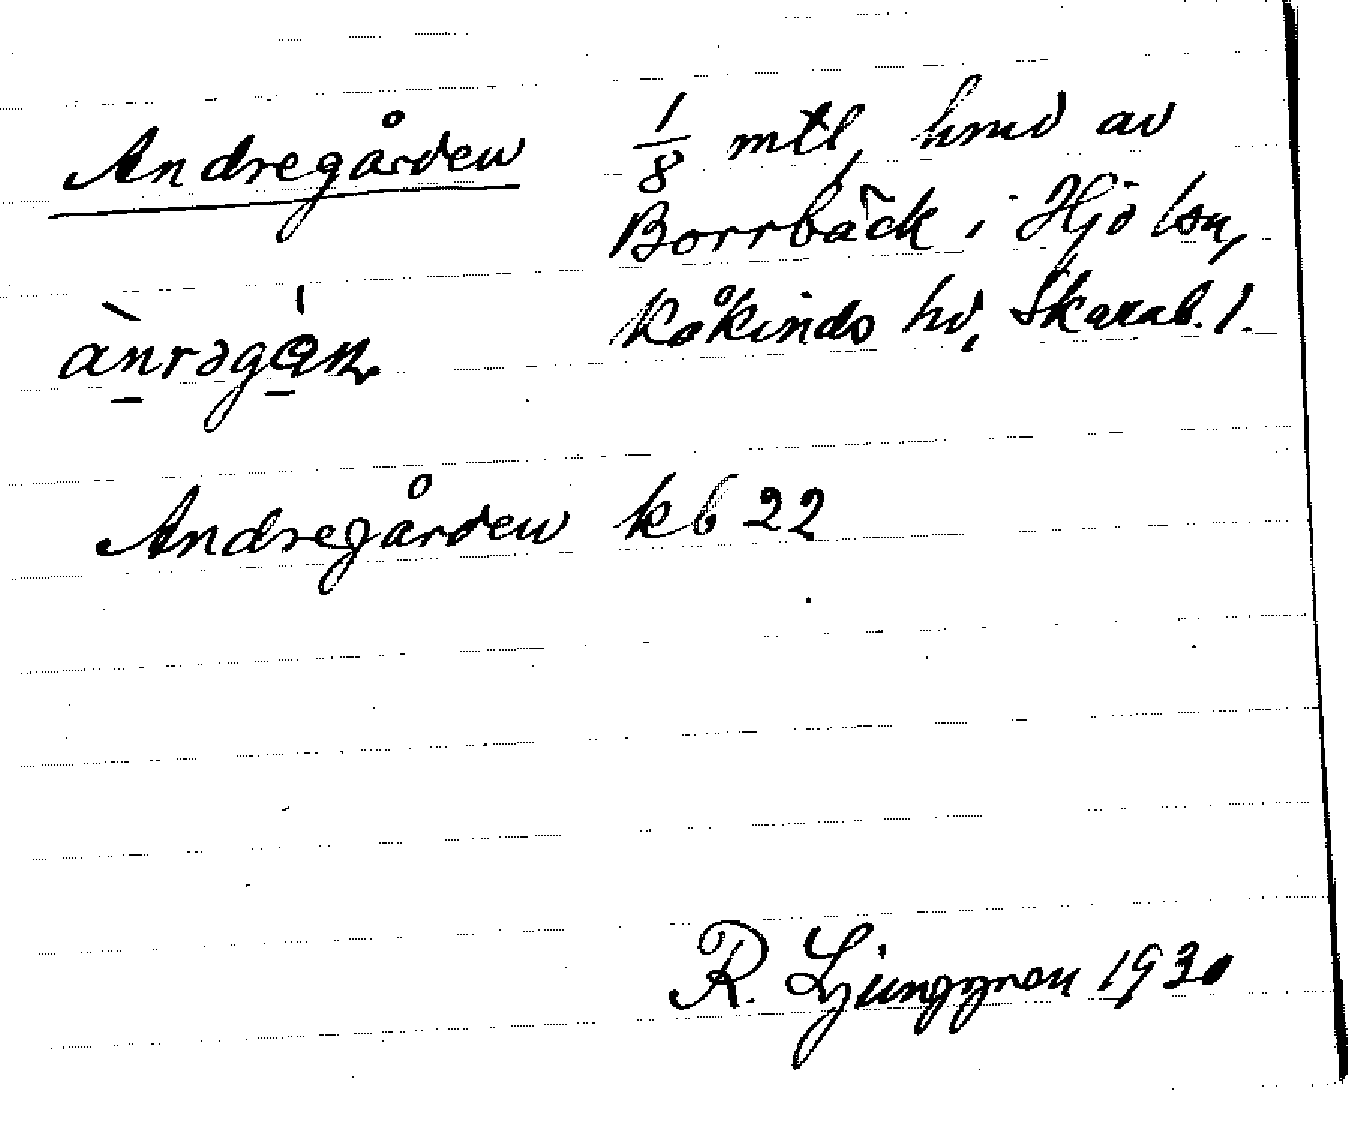 Andregården 1/8 mtl, hmd av
Borrbäck i Hjo lsn,
ànrəgán Kåkinds hd, Skarab. l.
Andregården kb 22
R. Ljunggren 1930